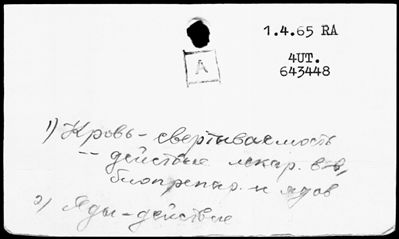 1.4.65 RA
4UT.
643448
A
1) Кровь – свертываемость
-- действие лекар. в-в,
биопрепар. и ядов
2) Яды – действие